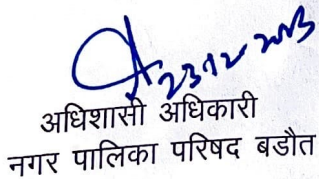 23-12-2013
अधिशासी अधिकारी
नगर पालिका परिषद बडौत